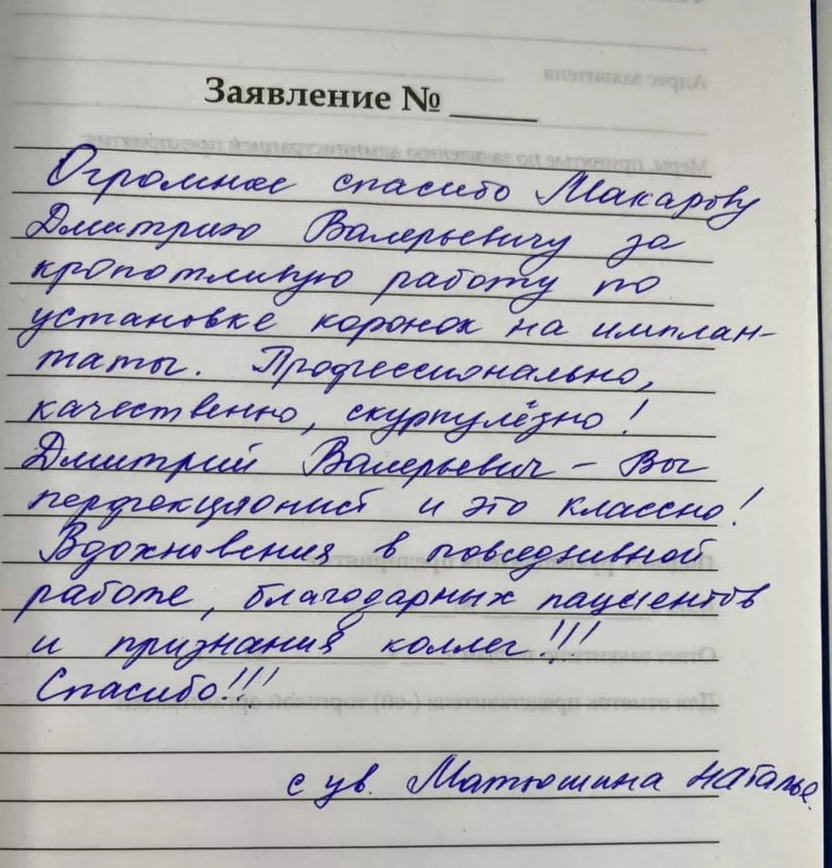 Адрес заявителя
Заявление № ____
Меры, принятые по заявлению администрацией предприятия:
Огромное спасибо Макарову
Дмитрию Валерьевичу за
кропотливую работу по
установке коронок на имплан-
таты. Профессионально,
качественно, скурпулёзно!
Дмитрий Валерьевич – Вы
перфекционист и это классно!
Вдохновения в повседневной
работе, благодарных пациентов
и признания коллег!!!
Спасибо!!!
с ув. Матюшина Наталья.